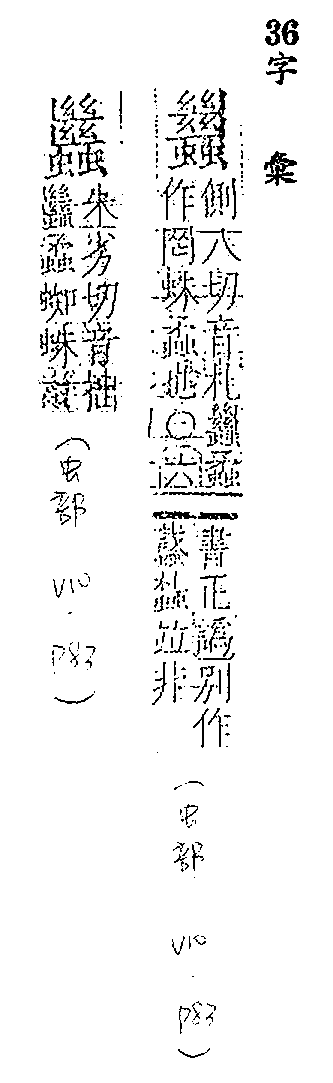 36字彙
側八切音札蠿蟊
作罔蛛蟊也〇六
書正譌別作
並非
(虫部 V10 . P83)
蠿 朱劣切音拙
蠿蟊蜘蛛
(虫部 V10 . P83)